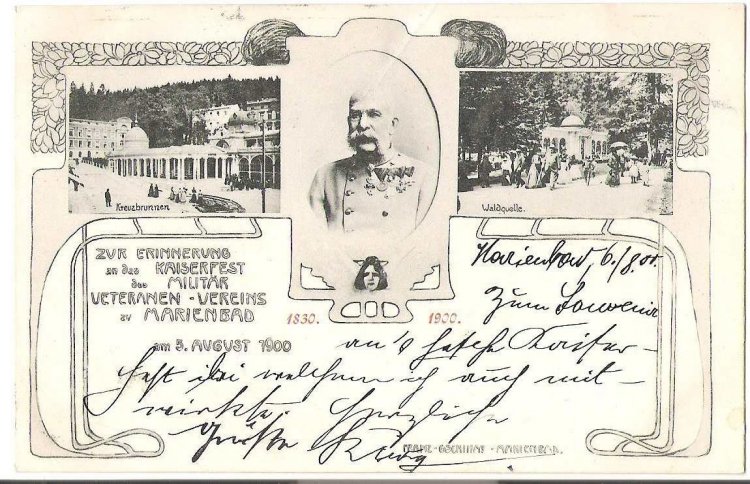 Kreuzbrunnen
Waldquelle.
ZUR ERINNERUNG
an das KAISERFEST
des MILITÄR
VETERANEN-VEREINS
zu MARIENBAD
am 5. AUGUST 1900
1830. 1900.
Marienbad, 6./8.00.
Zum Souvenir
an's fesche Kaiser-
fest bei welchem ich auch mit-
wirkte. Herzliche
Grüße
MARIENBAD.